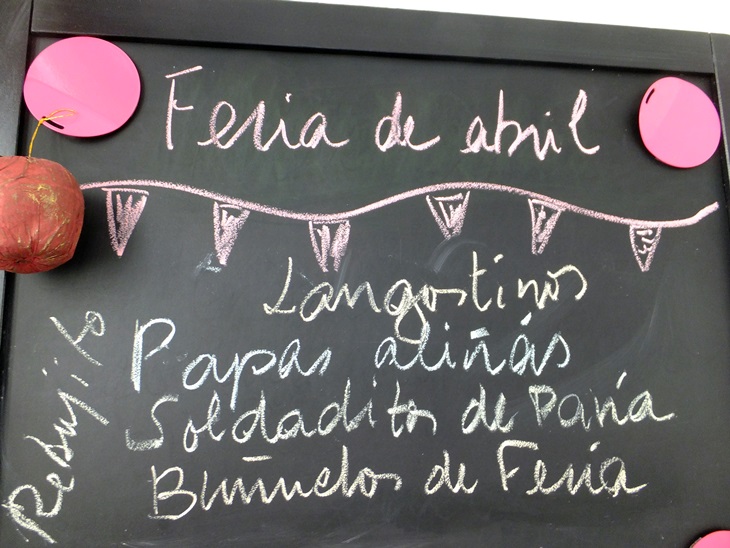 Feria de abril
Langostinos
Papas aliñás
Soldaditos de Pavía
Buñuelos de Feria
Rebujito